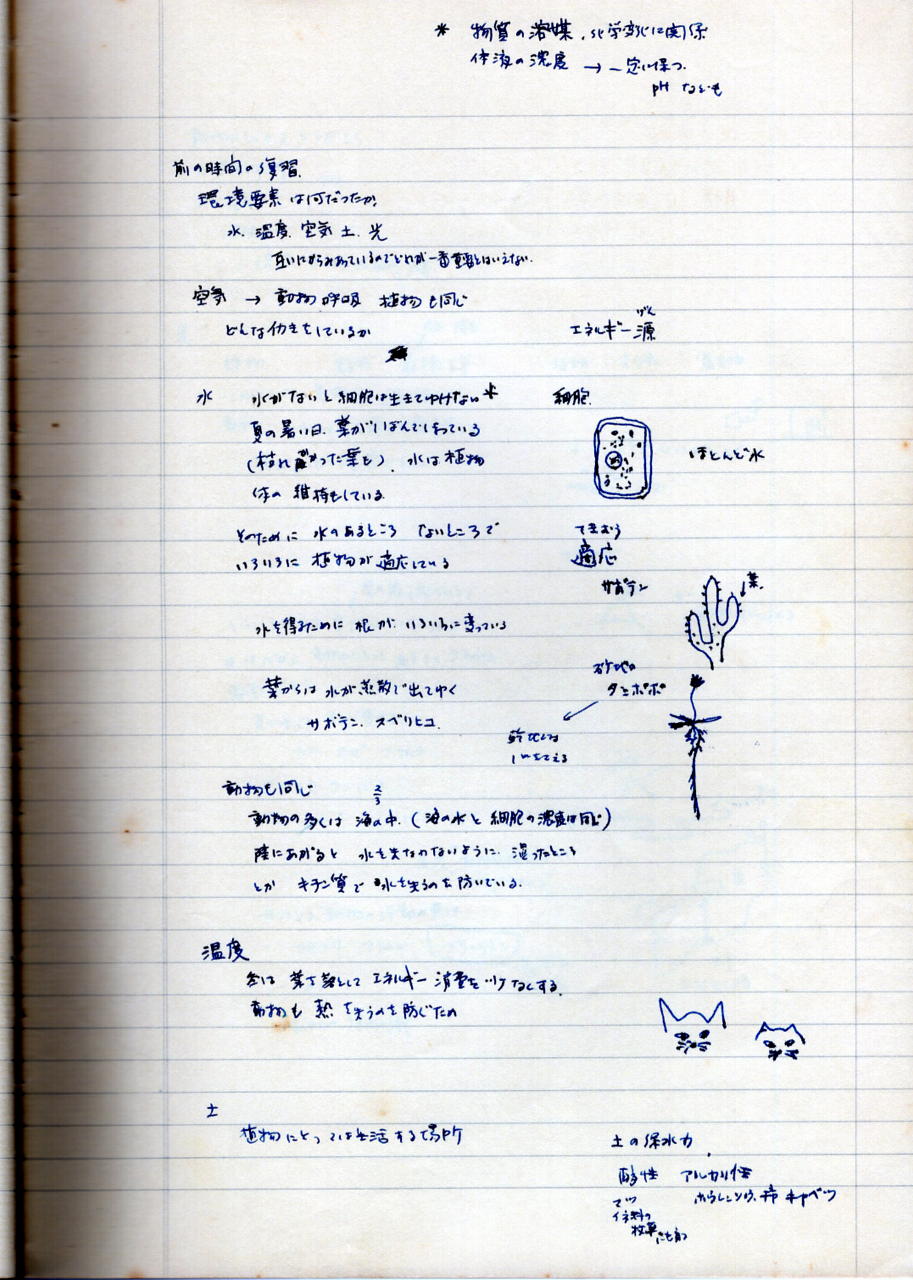 * 物質の溶媒、化学変化に関係
体液の濃度 → 一定に保つ
pH なども
前の時間の復習
環境要素は何だったか
水、温度、空気、土、光
互いにからみあっているのでどれが一番重要とはいえない。
空気 → 動物呼吸 植物も同じ
どんな仂きをしているか
げん
エネルギー源
水 水がないと細胞は生きてゆけない*
細胞
夏の暑い日、葉がしぼんでしまっている
(枯れかかった葉も)、水は植物
体の維持もしている
ほとんど水
そのために 水のあるところ ないところで
いろいろに 植物が適応している
てきおう
適応
サボテン
葉
水を得るために 根が いろいろに変っている
砂地の
タンポポ
葉からは 水が蒸散で出てゆく
サボテン、スベリヒユ
動物も同じ
2/3
動物の多くは 海の中、(海の水と細胞の濃度は同じ)
陸にあがると 水を失なわないように、湿ったところ
とか キチン質で 水を失うのを防いでいる。
温度
冬は 葉を落として エネルギー消費を少なくする。
動物も 熱を失うのを防ぐため
土
植物にとっては生活する場所
土の保水力
酸性 アルカリ性
マツ
ホウレンソウ、キャベツ
イネ科の
牧草